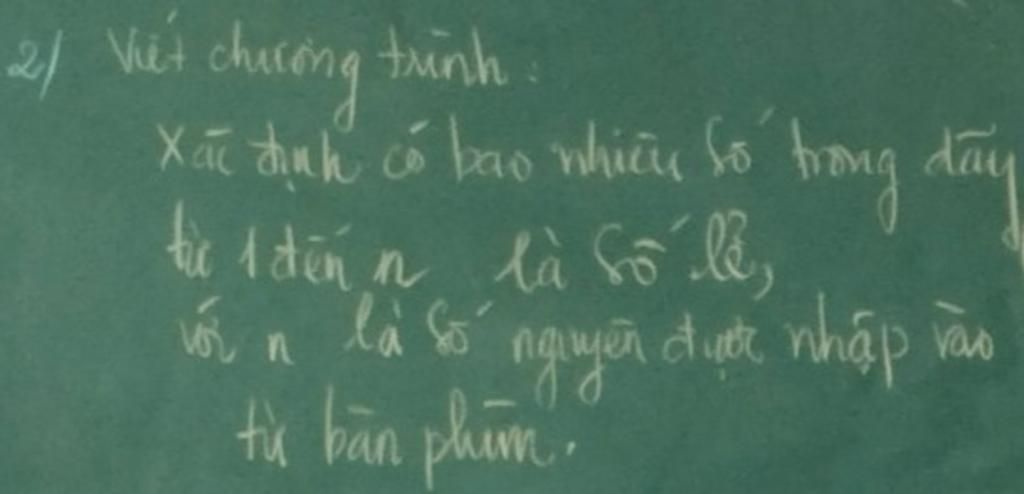 2/ Viết chương trình:
Xác định có bao nhiêu số trong dãy
từ 1 đến n là số lẻ,
với n là số nguyên được nhập vào
từ bàn phím.